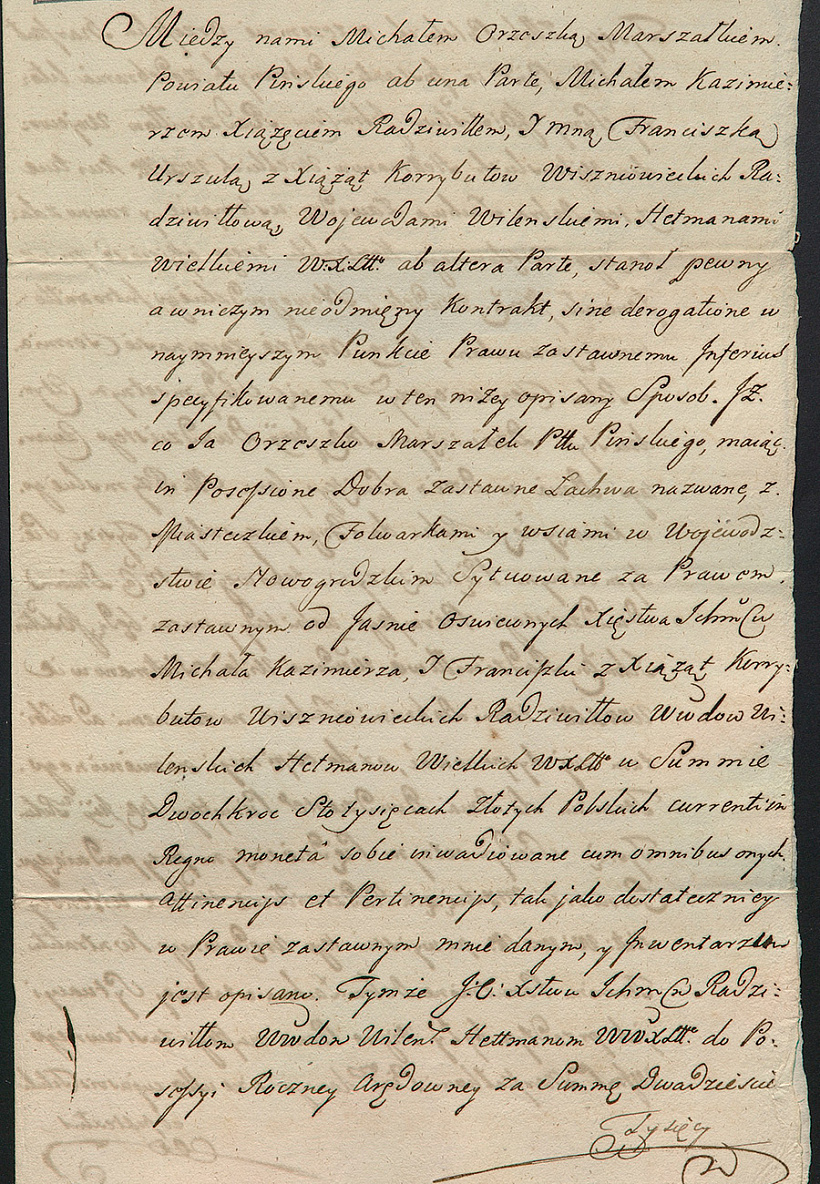 Między nami Michałem Orzeszką Marszałkiem
Powiatu Pinskiego ab una Parte, Michałem Kazimie:
rzem Xiążęciem Radziwiłłem, I mną Franciszką
Urszulą z Xiążąt Korrybutow Wiszniowieckich Ra:
dziwiłłową, Wojewodami Wilenskiemi, Hetmanami
Wielkiemi W.X.Litt. ab altera Parte, stanoł pewny
a w niczym nieodmięny Kontrakt, sine derogatione w
naymnieyszym Punkcie Prawu Zastawnemu Inferius
specyfikowanemu w ten niżey opisany Sposob. Iż.
co Ja Orzeszko Marszałek Pttu Pinskiego, maiąc
in Possessione Dobra Zastawne Lachwa nazwane, z
Miasteczkiem, Folwarkami y wsiami w Wojewodz:
stwie Nowogrodzkim Sytuowane za Prawem
zastawnym od Jasnie Oswieconych Xięstwa Ichm
Michała Kazimierza, I Franciszki z Xiążąt Korry:
butow Wiszniowieckich Radziwiłłow Wwdow Wi:
leńskich Hetmanow Wielkich WXLitt w Summie
Dwochkroc Sto tysięcach Złotych Polskich currenti in
Regno monetâ sobie inwadiowane cum omnibus onych
Attinencijs et Pertinencijs, tak jako dostateczniey
w Prawie zastawnym mnie danym, y Inwentarzem
jest opisano. Tymże J.O. Xstwu Ichm Radzi:
wiłłom Wwdom Wilen. Hettmanom WWXLitt. do Po:
sessyi Roczney Arędowney za Summę Dwadziescie
Tysięcy